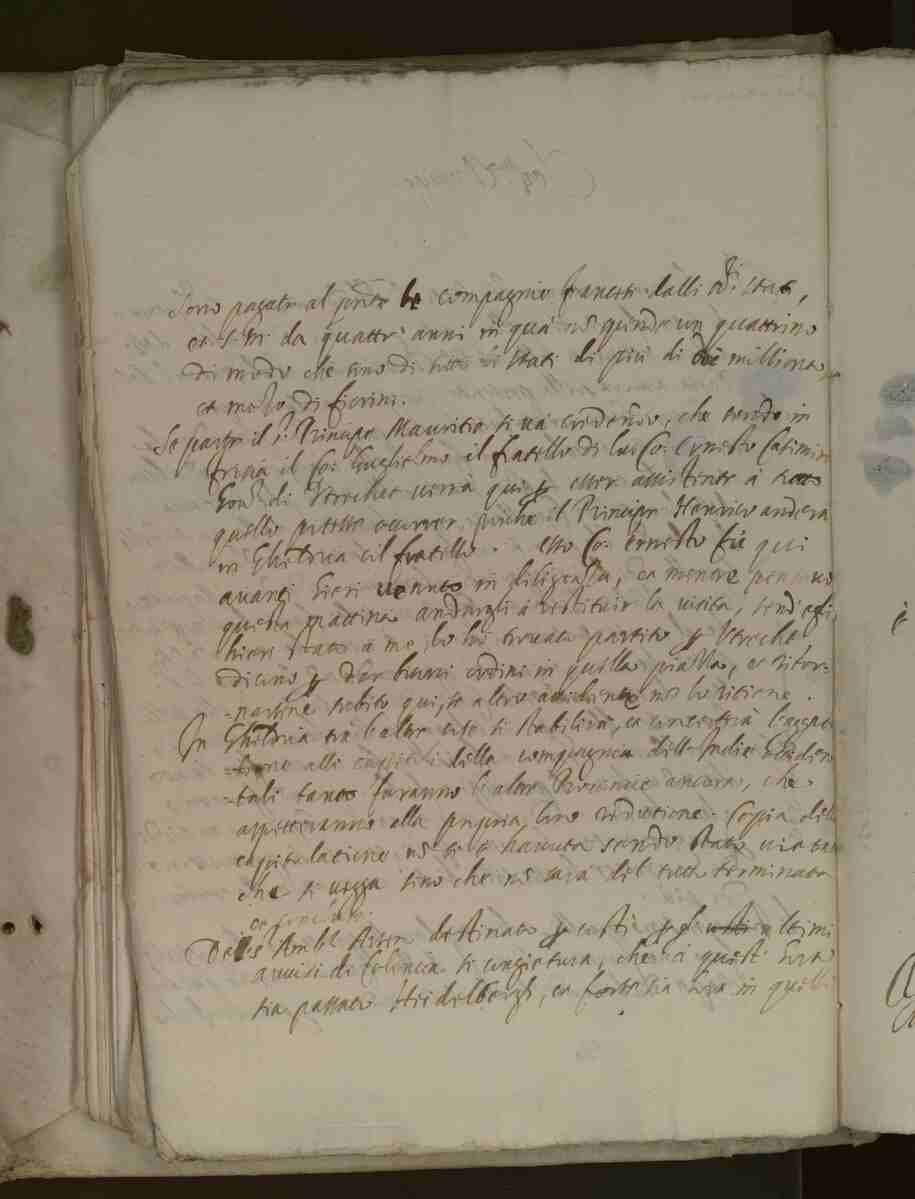 Sono pagate al pñte le compagnie francesi dalli SSri Stati,
et S. Mtà da quattr' anni in quà nõ spende un quattrino
di modo che sono di sotto li Stati di più di doi millioni
et mezo di fiorini.
Se parte il Sr Principe Mauritio si và credendo, che sendo in
Frisia il Co: Guglielmo il fratello di lui Co: Ernesto Casimiro
Govr di Utrecht verrà qui per esser assistente à tutto
quello potesse occorrer, poiche il Principe Henrico anderà
in Gheldria col fratello. esso Co: Ernesto fù qui
avanti hieri venuto in diligenza, et mentre pensavo
questa mattina andargli à restituir la visita, send' egli
hieri stato à me, lo hò trovato partito per Utrecht
dicono per dar buoni ordini in quella piazza, et ritor-
-narsene subito qui, se altro accidente non lo ritiene.
In Gheldria trà l'altre cose si stabilirà, et concerterà l'accetta-
-tione alli capitoli della compagnia dell'Indie Occiden-
-tali tanto faranno l'altre Provincie ancora, che
aspetteranno alla propria loro reduttione. Copia della
capitulatione nõ si è havuta sendo stato vietato
che si vegga sino che nõ sarà del tutto terminata
et
Dell' Ambr Arsen destinato per costì per gl' ultimi
avvisi di Colonia si congiettura, che à quest' hora
sia passato Heidelbergh, et forse sia hora in quelli